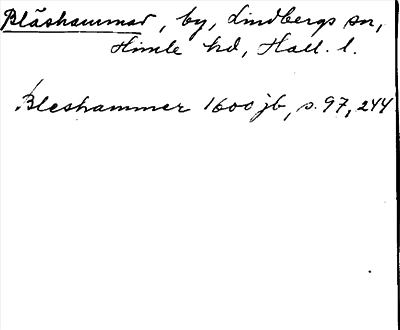 Blåshammar, by, Lindbergs sn,
Himle hd, Hall. l.
Bleshammer 1600 jb, s. 97, 244